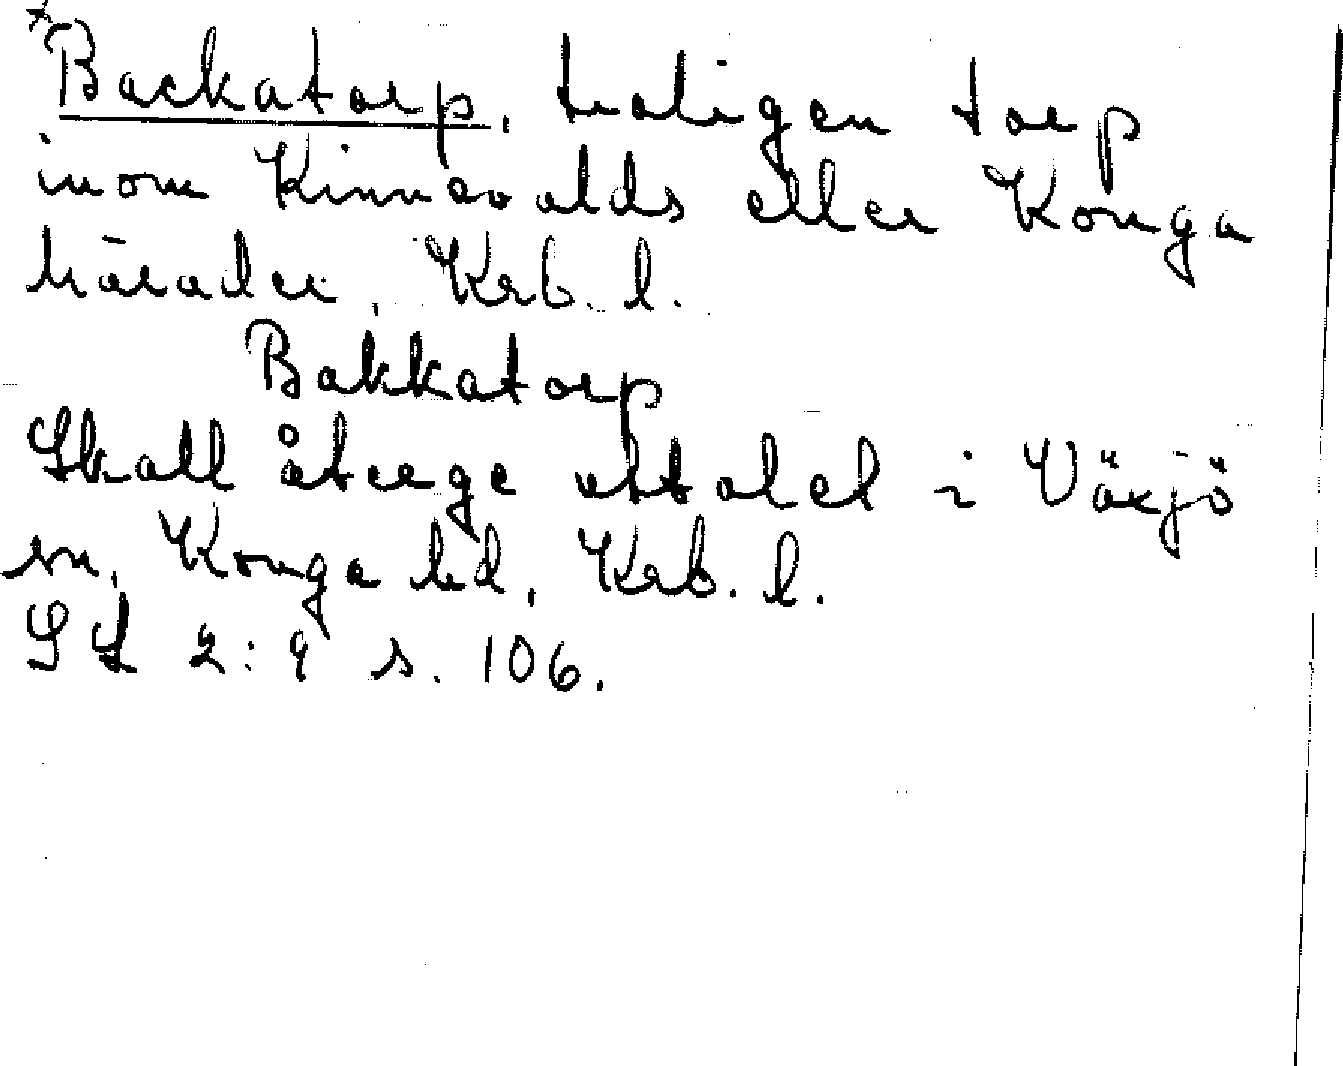 *Backatorp, troligen torp
inom Kinnevalds eller Konga
härader, Krb. l.
Bakkatorp
Skall återge uttalet i Växjö
sn, Konga hd, Krb. l.
SL 2:9 s. 106.